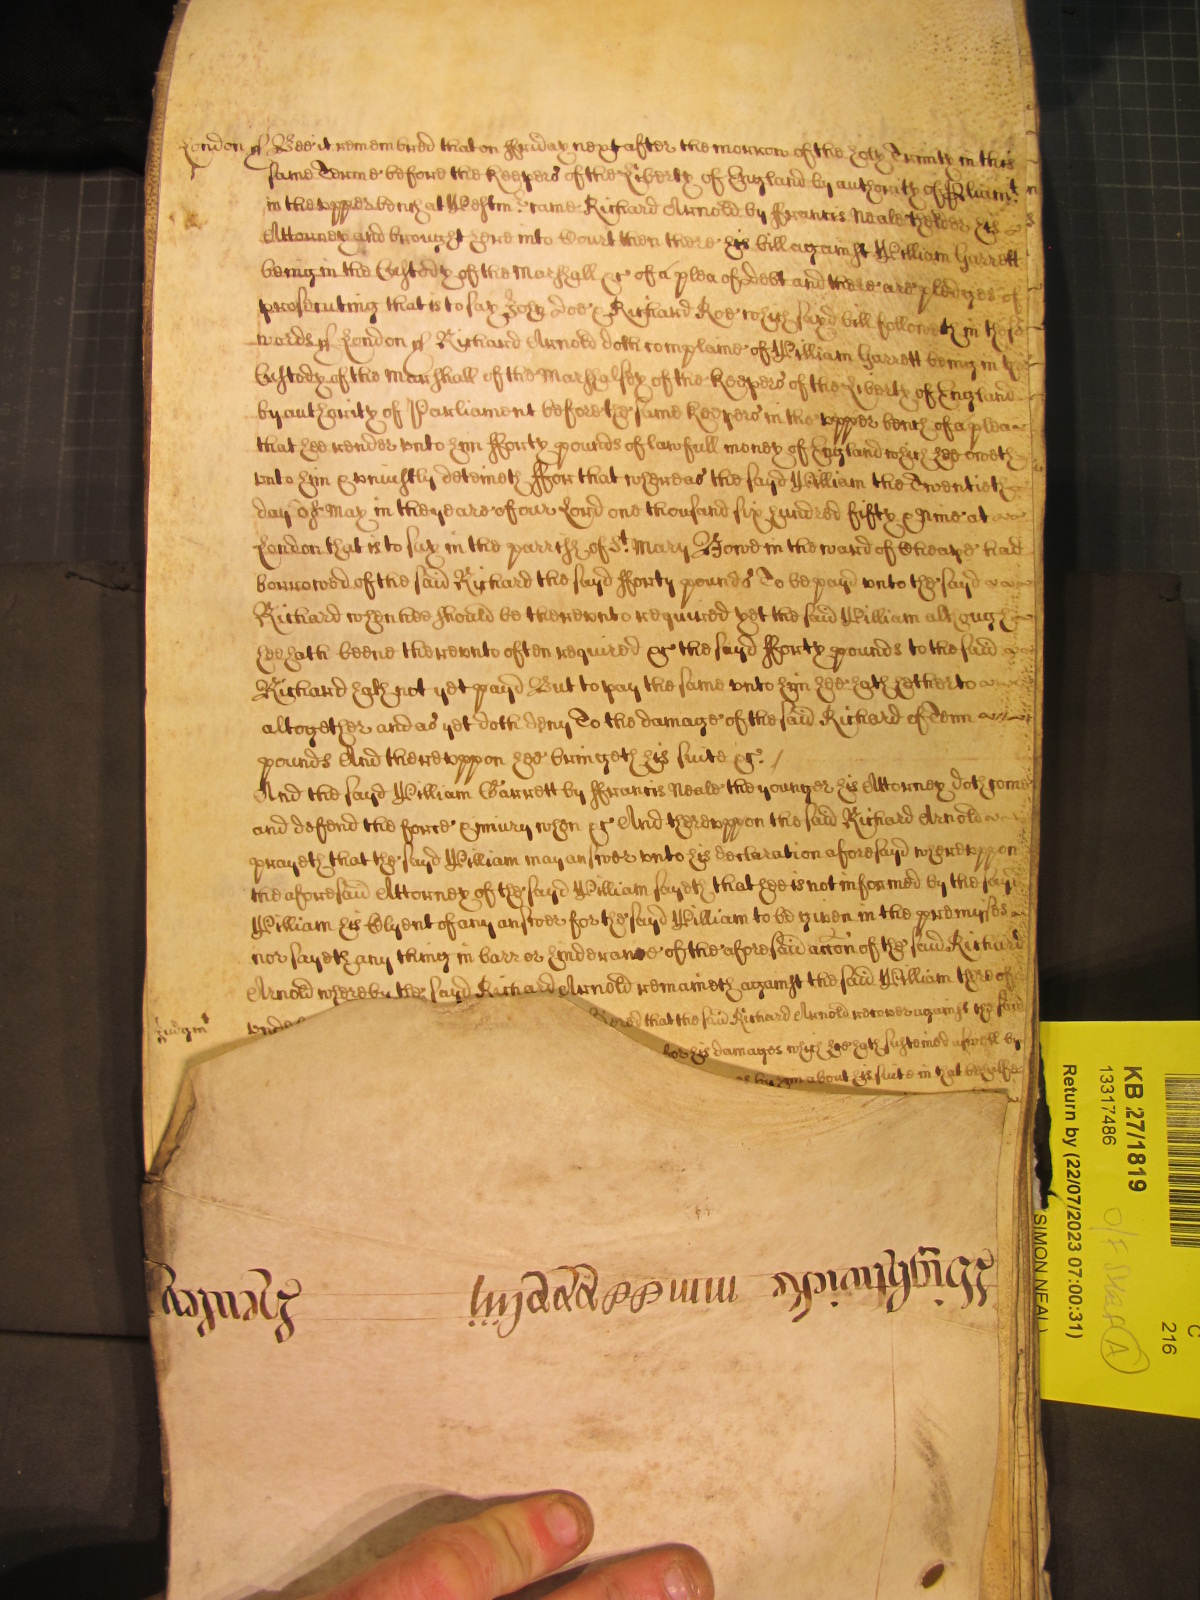 London ss Bee it remembred that on ffriday next after the morrow of the holy Trinity in this
same Terme before the Keepers of the Liberty of England by authority of Parliamt
in the vpper bench at Westmr came Richard Arnold by ffrancis Neale the elder his
Attorney and brought here into Court then there his bill against William Garrett
being in the Custody of the Marshall &c of a plea of debt and there are pledges of
prosecuting that is to say John Doe & Richard Roe which sayd bill followeth in these
words ss London ss Richard Arnold doth complaine of William Garrett being in the
Custody of the Marshall of the Marshalsey of the Keepers of the Liberty of England
by authority of Parliament before the same Keepers in the vpper bench of a plea
that hee render vnto him fforty pounds of lawfull money of England which hee oweth
vnto him & vniustly deteineth ffor that whereas the sayd William the Twentieth
day of May in the yeare of our Lord one thousand six hundred fifty & Nine at
London that is to say in the parrish of St Mary Bowe in the ward of Cheape had
borrowed of the said Richard the sayd fforty pounds To be payd vnto the sayd
Richard when hee should be therevnto required yet the said William although
hee hath beene therevnto often required &c the sayd fforty pounds to the said
Richard hath not yet payd But to pay the same vnto him hee hath hetherto
altogether and as yet doth deny To the damage of the said Richard of Tenn
pounds And therevppon hee bringeth his suite &c. /
And the sayd William Garrett by ffrancis Neale the younger his Attorney doth come
and defend the force & iniury when &c And therevppon the said Richard Arnold
prayeth that the sayd William may answer vnto his declaration aforesayd wherevppon
the aforesaid Attorney of the sayd William sayeth that hee is not informed by the sayd
William his Clyent of any answer for the sayd William to be given in the premyses
nor sayeth any thing in barr or hinderance of the aforesaid accon of the said Richard
Arnold whereby the sayd Richard Arnold remaineth against the said William there of
Judgmt
that the said Richard Arnold recover against the said
his damages which hee hath susteined aswell by
by him about his suite in that behalfe
Wightwicke mmccxxxiiij Henley
KB 27/1819
13317486
Return by (22/07/2023 07:00:31)
SIMON NEAL
C
216
A